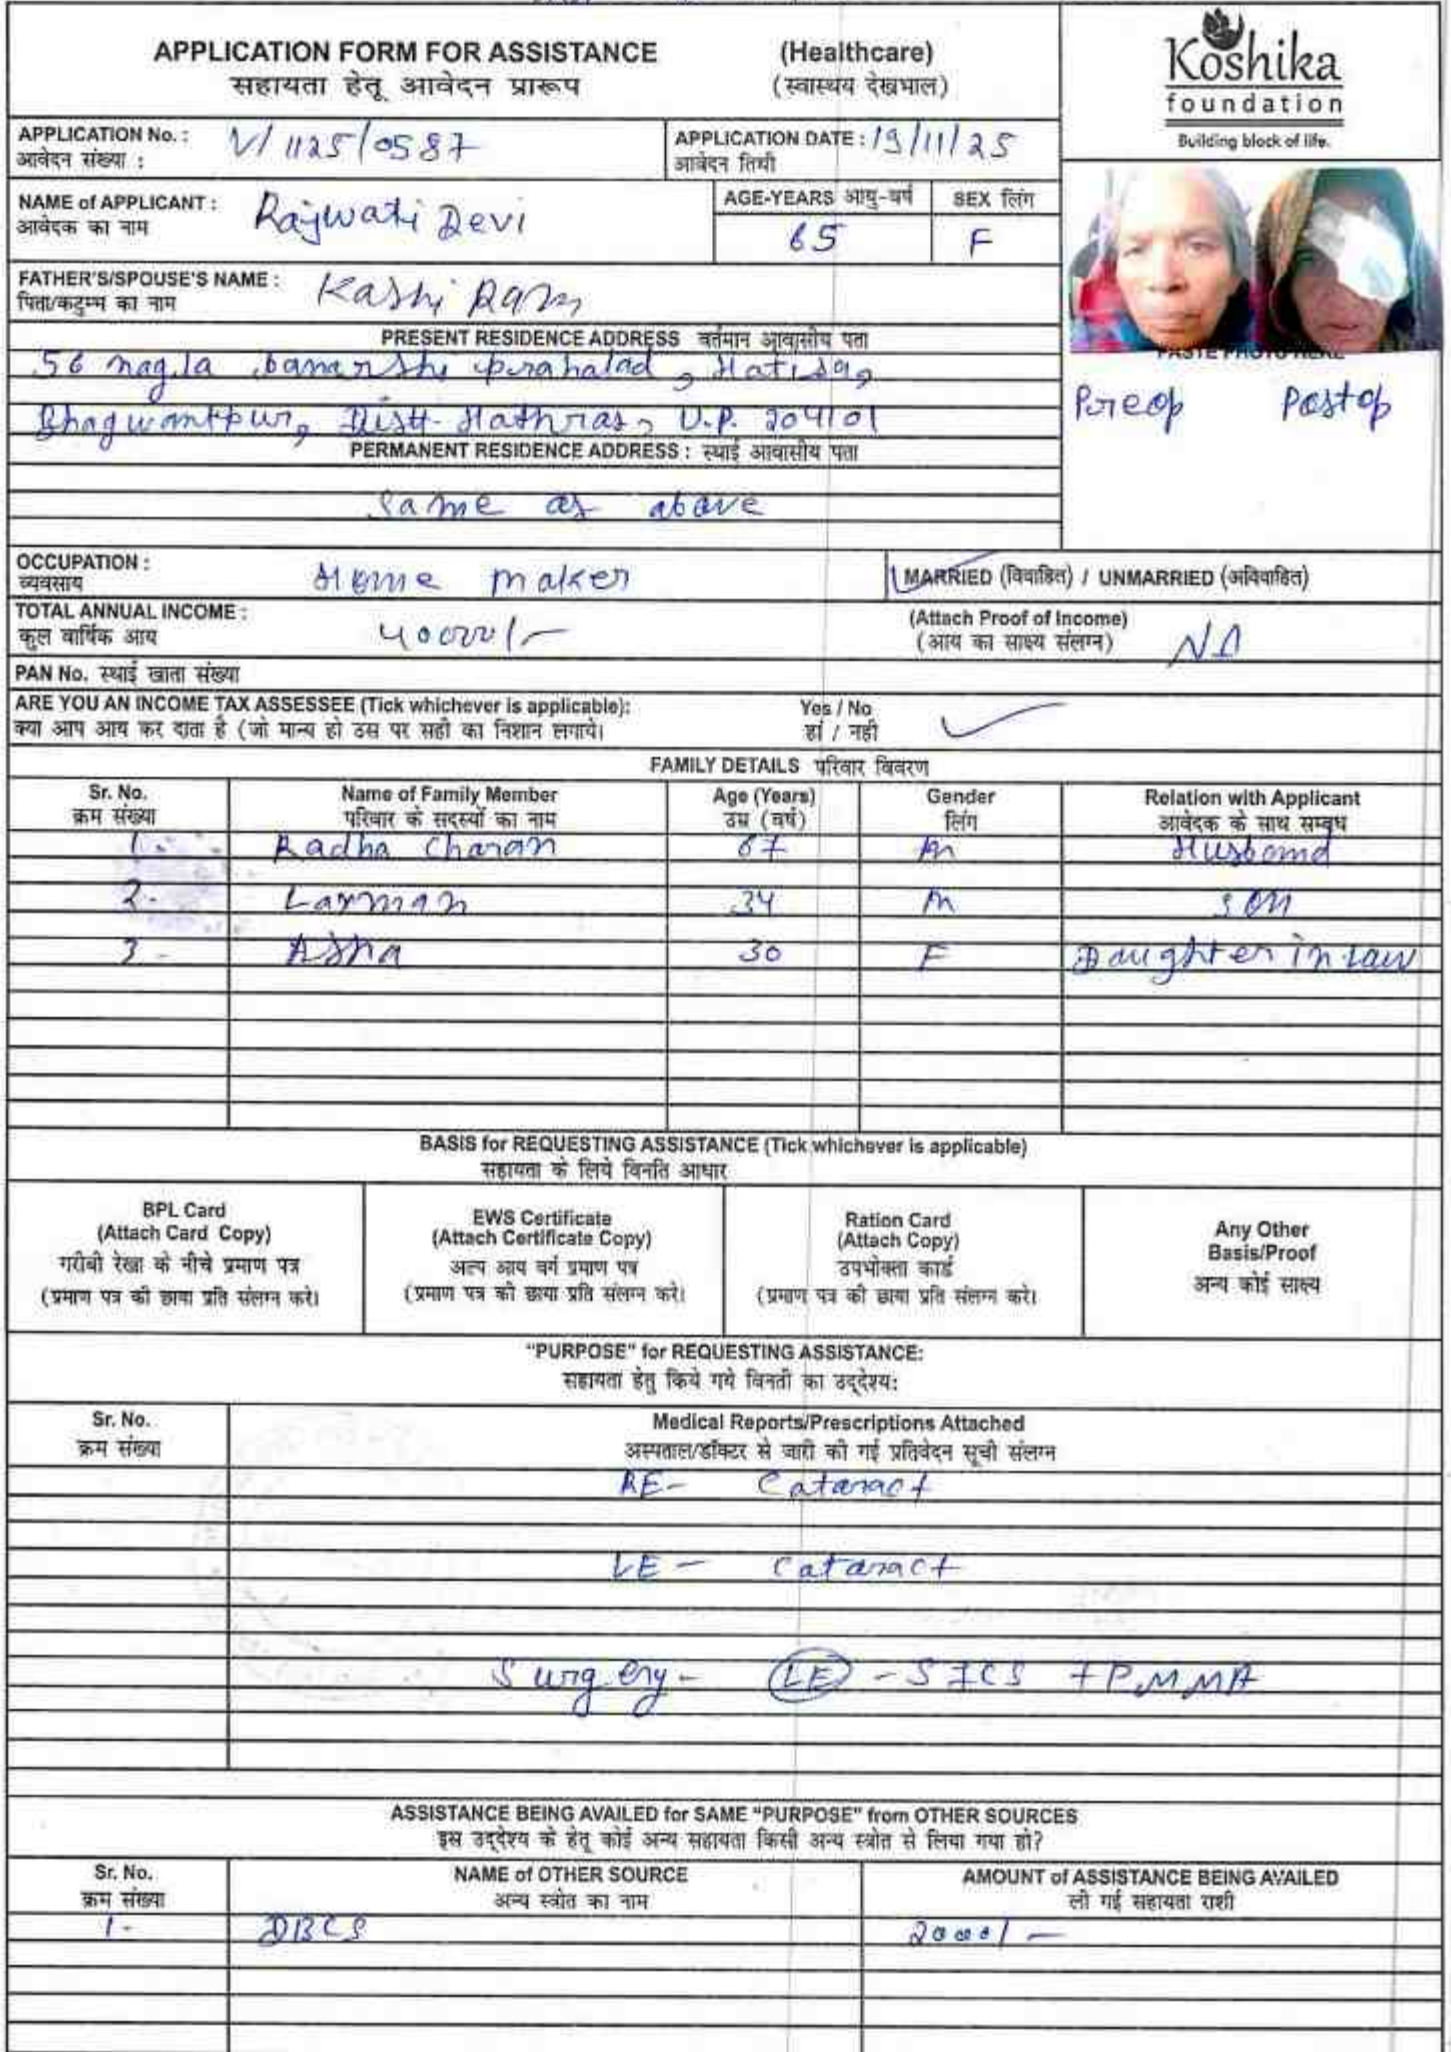 APPLICATION FORM FOR ASSISTANCE (Healthcare)
सहायता हेतू आवेदन प्रारूप (स्वास्थय देखभाल)
Koshika
foundation
Building block of life.
APPLICATION No. : V/1125/0587
आवेदन संख्या :
APPLICATION DATE : 19/11/25
आवेदन तिथी
NAME of APPLICANT : Rajwati Devi
आवेदक का नाम
AGE-YEARS आयु-वर्ष SEX लिंग
65 F
FATHER'S/SPOUSE'S NAME : Kashi Ram
पिता/कटुम्म का नाम
PRESENT RESIDENCE ADDRESS वर्तमान आवासीय पता
56 nagla banarshi prahalad, Hatisa,
Bhagwantpur, Distt- Hathras, U.P. 204101
PASTE PHOTO HERE
Preop Postop
PERMANENT RESIDENCE ADDRESS : स्थाई आवासीय पता
Same as above
OCCUPATION : Home maker
व्यवसाय
MARRIED (विवाहित) / UNMARRIED (अविवाहित)
TOTAL ANNUAL INCOME :
कुल वार्षिक आय
(Attach Proof of Income)
(आय का साक्ष्य संलग्न)
PAN No. स्थाई खाता संख्या
ARE YOU AN INCOME TAX ASSESSEE (Tick whichever is applicable): Yes / No
क्या आप आय कर दाता है (जो मान्य हो उस पर सही का निशान लगाये। हां / नही
FAMILY DETAILS परिवार विवरण
Sr. No. Name of Family Member Age (Years) Gender Relation with Applicant
क्रम संख्या परिवार के सदस्यों का नाम उम्र (वर्ष) लिंग आवेदक के साथ सम्बन्ध
1. Radha Charan 67 M Husband
2. Laxman 34 M Son
3 - Asha 30 F Daughter in law
BASIS for REQUESTING ASSISTANCE (Tick whichever is applicable)
सहायता के लिये विनति आधार
BPL Card
(Attach Card Copy)
गरीबी रेखा के नीचे प्रमाण पत्र
(प्रमाण पत्र की छाया प्रति संलग्न करे।
EWS Certificate
(Attach Certificate Copy)
अल्प आय वर्ग प्रमाण पत्र
(प्रमाण पत्र की छाया प्रति संलग्न करे।
Ration Card
(Attach Copy)
उपभोक्ता कार्ड
(प्रमाण पत्र की छाया प्रति संलग्न करे।
Any Other
Basis/Proof
अन्य कोई साक्ष्य
"PURPOSE" for REQUESTING ASSISTANCE:
सहायता हेतु किये गये विनती का उद्देश्य:
Sr. No. Medical Reports/Prescriptions Attached
क्रम संख्या अस्पताल/डॉक्टर से जारी की गई प्रतिवेदन सूची संलग्न
RE- Cataract
LE - Cataract
Surgery - LE - SICS + PMMA
ASSISTANCE BEING AVAILED for SAME "PURPOSE" from OTHER SOURCES
इस उद्देश्य के हेतू कोई अन्य सहायता किसी अन्य स्त्रोत से लिया गया हो?
Sr. No. NAME of OTHER SOURCE AMOUNT of ASSISTANCE BEING AVAILED
क्रम संख्या अन्य स्त्रोत का नाम ली गई सहायता राशी
1- DBCS 2000/-